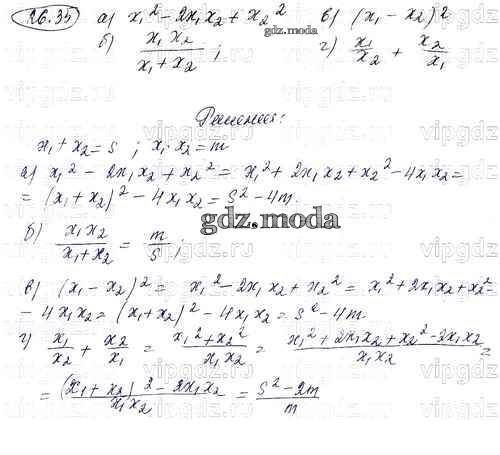 26.35 а) x₁² - 2x₁x₂ + x₂² в) (x₁ - x₂)²
б) x₁x₂ / x₁ + x₂ ; г) x₁/x₂ + x₂/x₁
gdz.moda
Решение:
x₁ + x₂ = s ; x₁·x₂ = m
а) x₁² - 2x₁x₂ + x₂² = x₁² + 2x₁x₂ + x₂² - 4x₁x₂ =
= (x₁ + x₂)² - 4x₁x₂ = s² - 4m.
gdz.moda
б) x₁x₂ / x₁ + x₂ = m/s ;
в) (x₁ - x₂)² = x₁² - 2x₁x₂ + x₂² = x₁² + 2x₁x₂ + x₂² =
- 4x₁x₂ = (x₁ + x₂)² - 4x₁x₂ = s² - 4m
г) x₁/x₂ + x₂/x₁ = x₁² + x₂² / x₁x₂ = x₁² + 2x₁x₂ + x₂² - 2x₁x₂ / x₁x₂ =
= (x₁ + x₂)² - 2x₁x₂ / x₁x₂ = s² - 2m / m
vipgdz